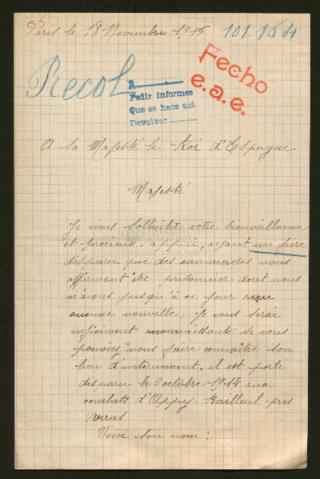 Paris le 18 Novembre 1915
101.164
Recol
Fecho
e.a.e.
A
Pedir informes
Que se hace así
Devolver
A sa Majesté le Roi d'Espagne
Majesté
Je vous sollicite votre bienveillance
et précieux appui, ayant un frère
disparu que des camarades nous
affirment être prisonnier dont nous
n'avons jusqu'à ce jour reçu
aucune nouvelle, je vous serai
infiniment reconnaissante si vous
pouviez nous faire connaître son
lieu d'internement, il est porté
disparu le 1 octobre 1914 aux
combats d'Oppy-Bailleul près
Arras
Voici son nom: